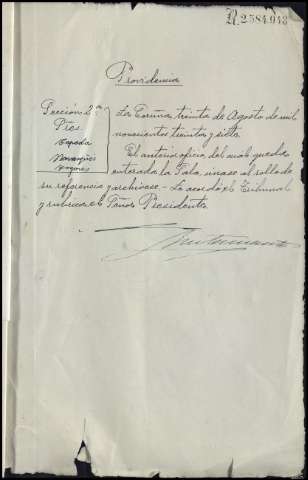 R.2584.943
Providencia
Sección 2ª
Pres.
Cepeda
La Coruña treinta de Agosto de mil
novecientos treinta y siete.
El anterior oficio del cual queda
enterada la Sala, unase al rollo de
su referencia y archivese - Lo acordó el Tribunal
y rubrica el Señor Presidente